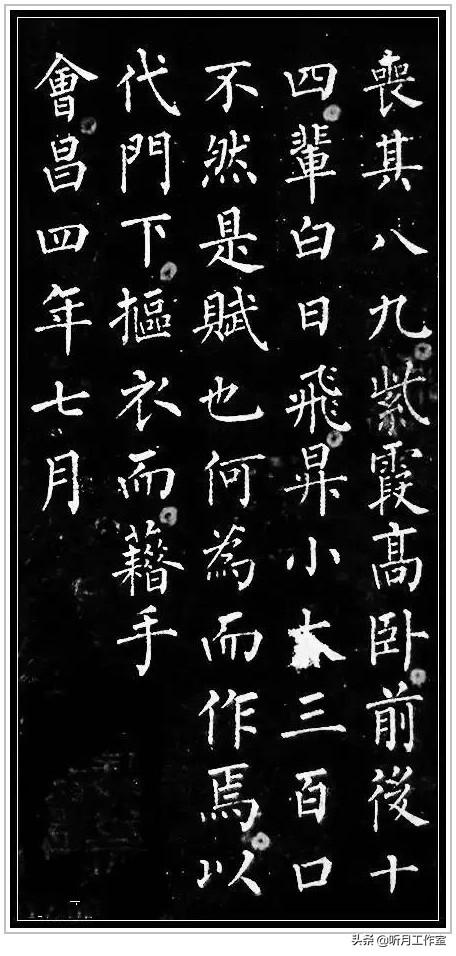 喪其八九紫霞高卧前後十
四輩白日飛昇小大三百口
不然是賦也何為而作焉以
代門下摳衣而藉手
會昌四年七月
头条 @听月工作室